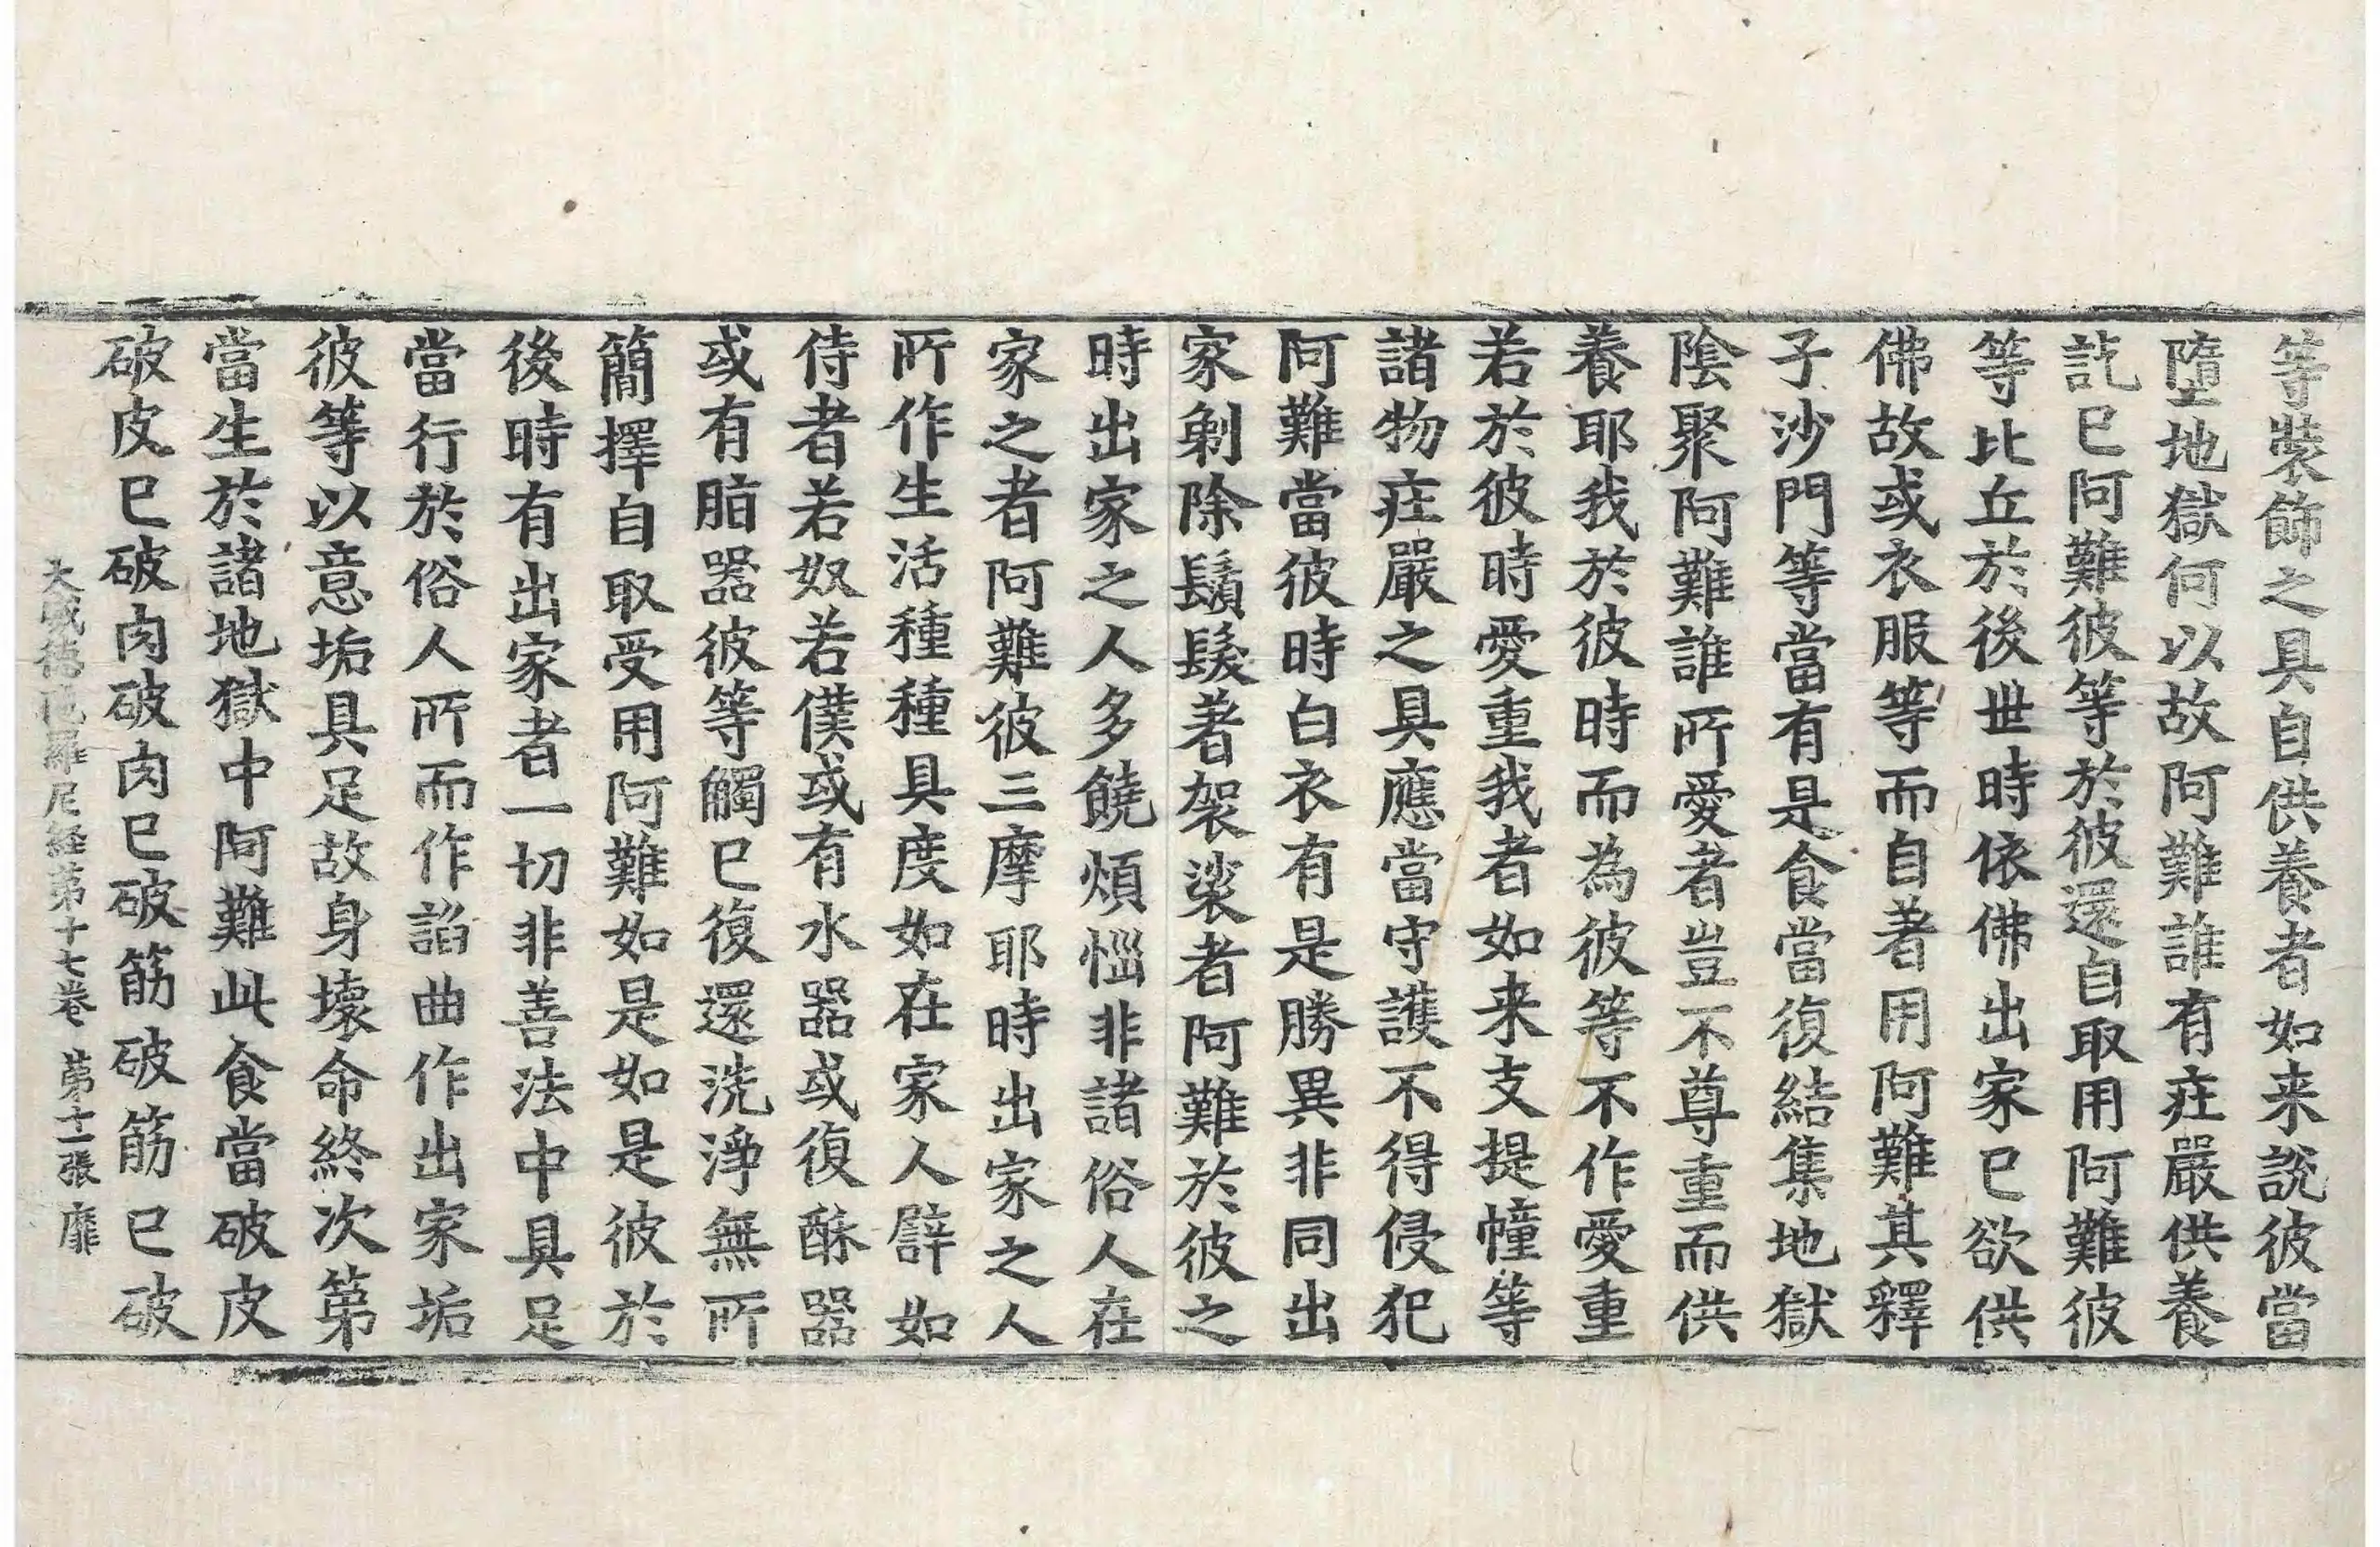 等裝飾之具自供養者如来說彼當
墮地獄何以故阿難誰有疘嚴供養
訖已阿難彼等於彼還自取用阿難彼
等比丘於後世時依佛出家已欲供
佛故或衣服等而自著用阿難其釋
子沙門等當有是食當復結集地獄
陰聚阿難誰所愛者豈不尊重而供
養耶我於彼時而為彼等不作愛重
若於彼時愛重我者如来支提幢等
諸物疘嚴之具應當守護不得侵犯
阿難當彼時白衣有是勝異非同出
家剃除鬚髮著袈裟者阿難於彼之
時出家之人多饒煩惱非諸俗人在
家之者阿難彼三摩耶時出家之人
所作生活種種具度如在家人譬如
侍者若奴若僕或有水器或復酥器
或有脂器彼等觸已復還洗淨無所
簡擇自取受用阿難如是如是彼於
後時有出家者一切非善法中具足
當行於俗人所而作諂曲作出家垢
彼等以意垢具足故身壞命終次第
當生於諸地獄中阿難此食當破皮
破皮已破肉破肉已破筋破筋已破
大威德陁羅尼経第十七卷 第十一張 靡